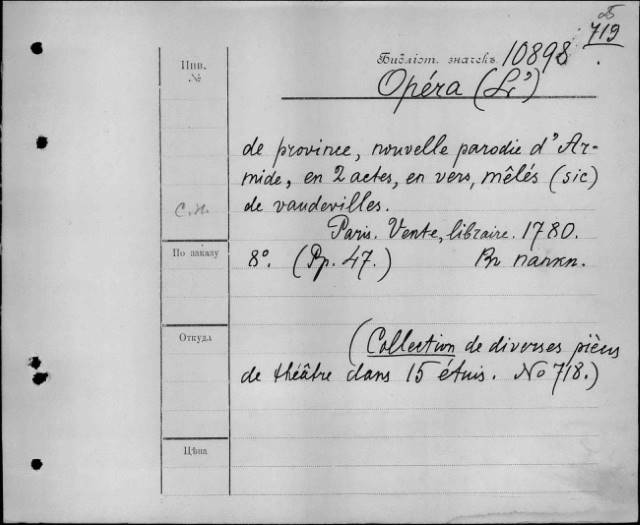 Б
719
Библіот. значекъ 10898
Инв.
№
Opéra (L')
de province, nouvelle parodie d'Ar-
mide, en 2 actes, en vers, mêlés (sic)
de vaudevilles.
С.Н.
Paris. Vente, libraire. 1780.
По заказу
8°. (Pp. 47.) Въ папкѣ.
Откуда
(Collection de diverses pièces
de théâtre dans 15 étuis. No 718.)
Цѣна